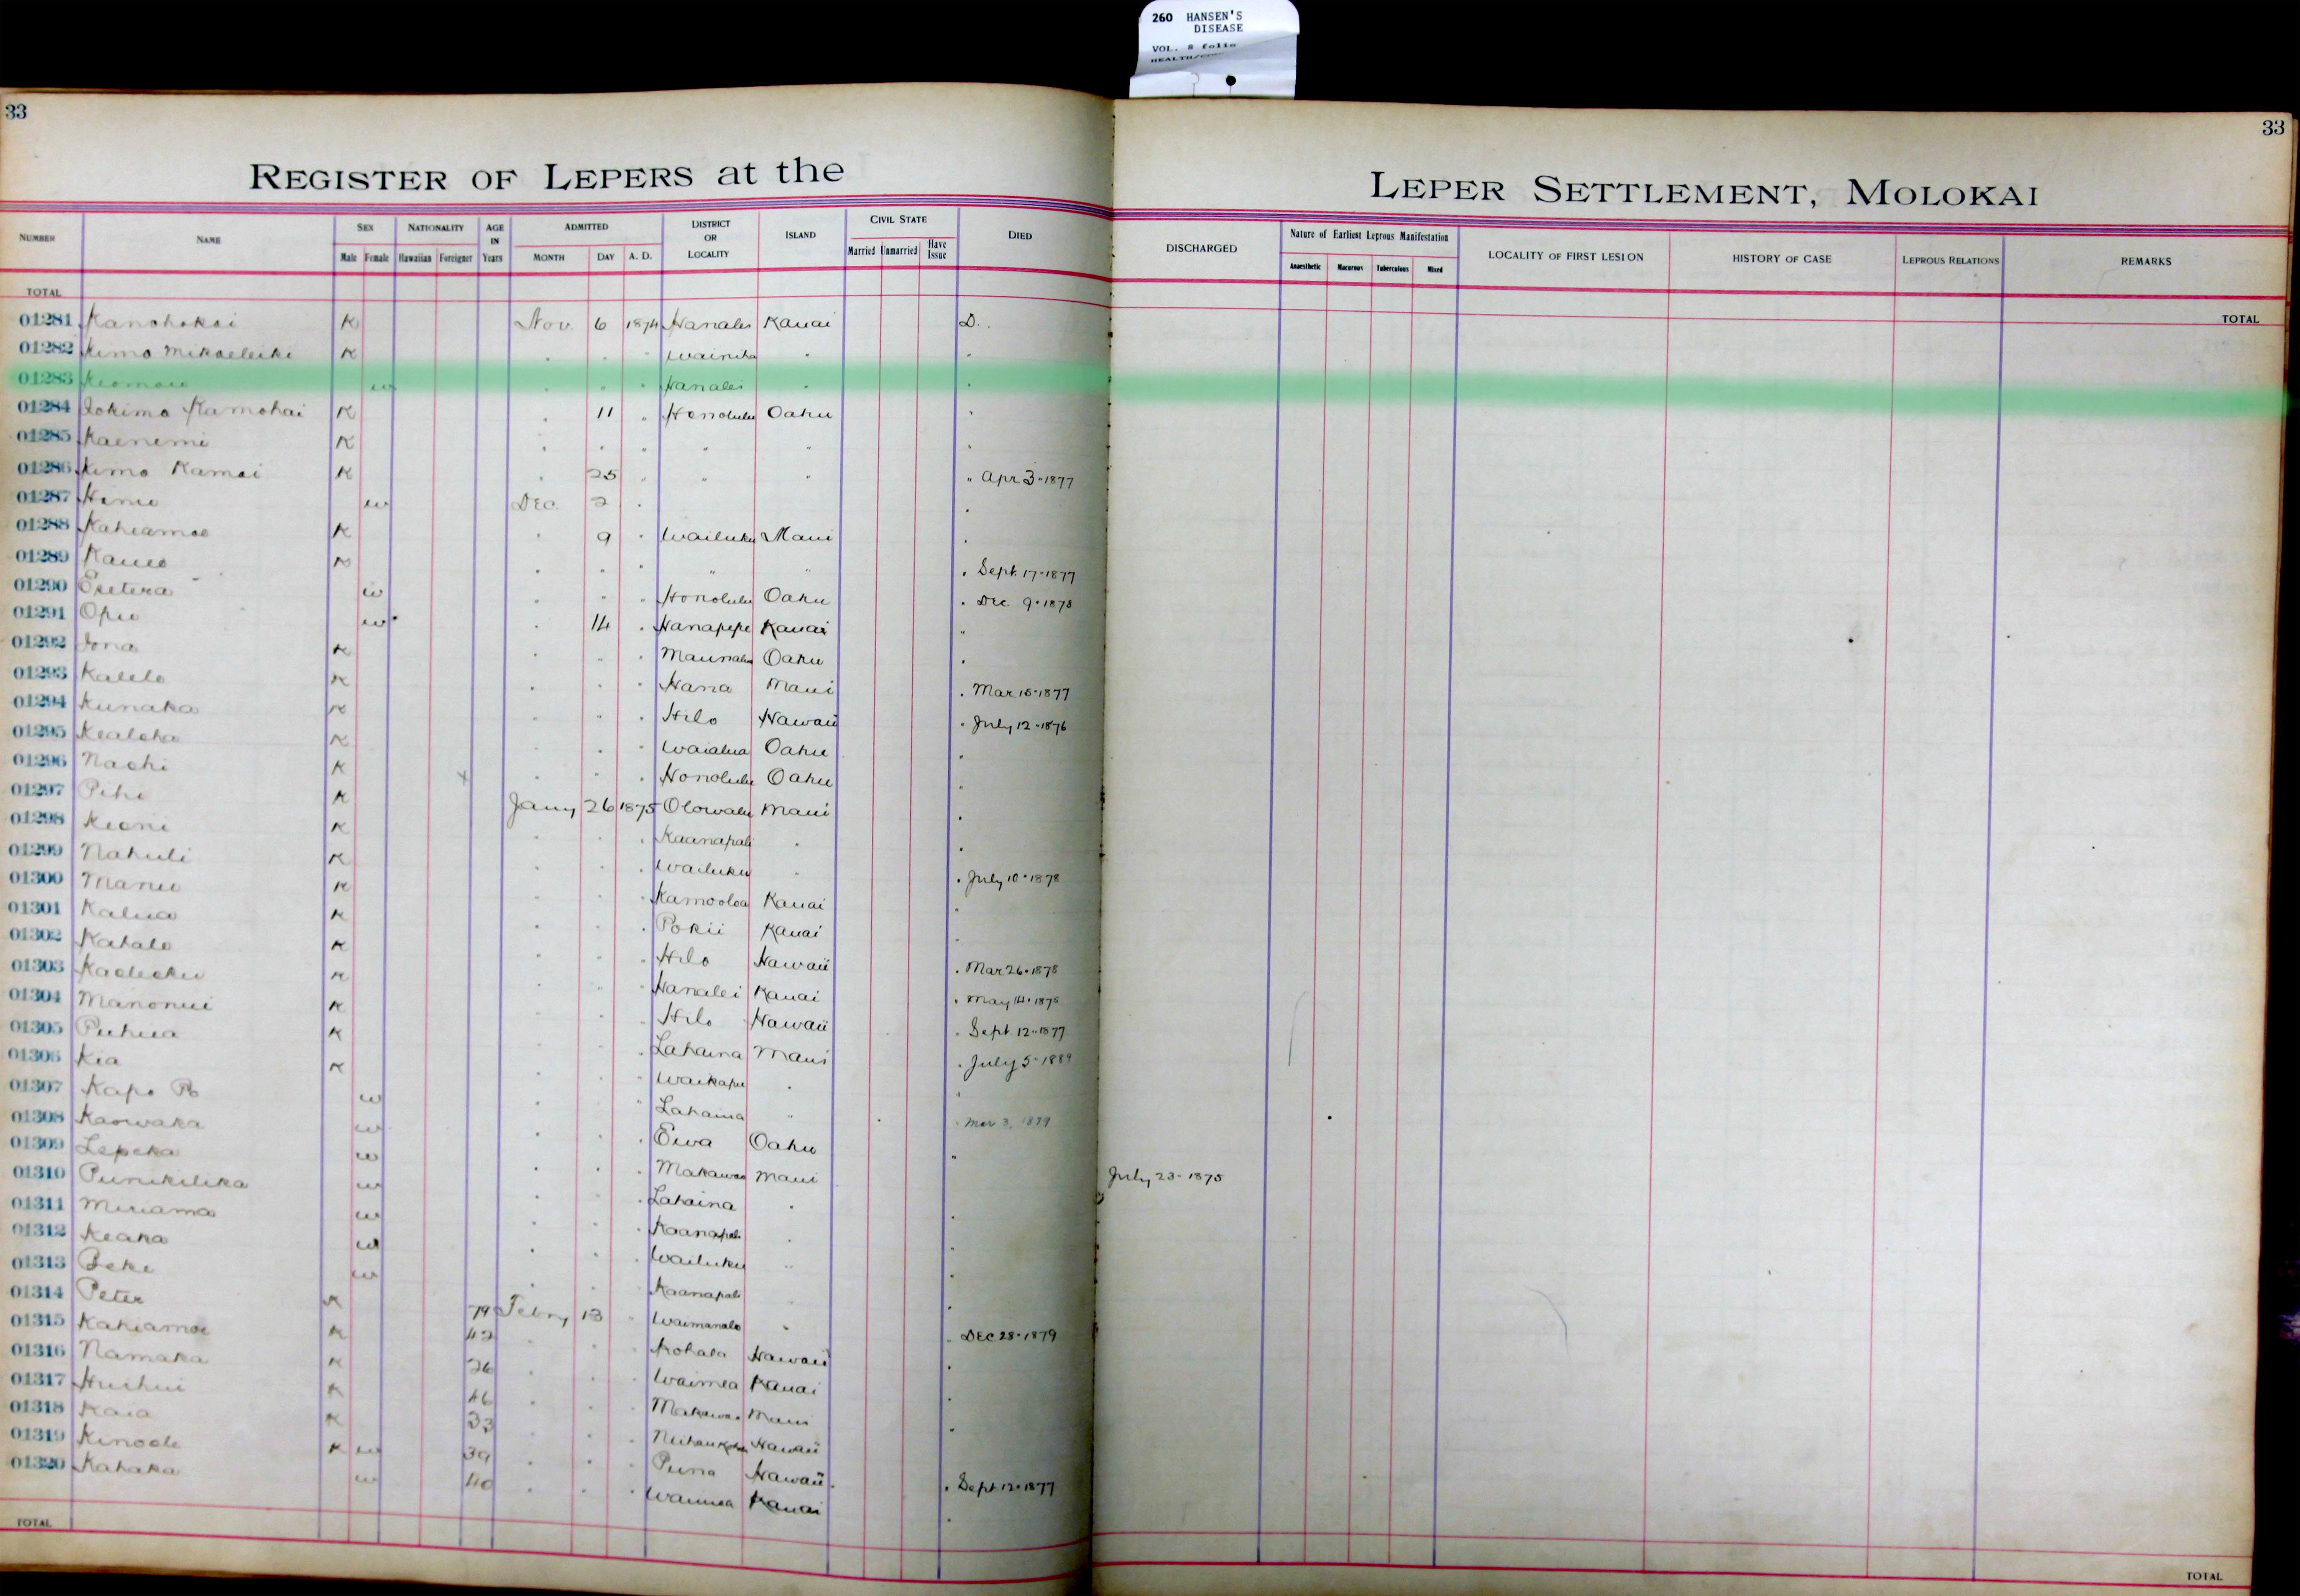 260 HANSEN'S
DISEASE
VOL. 8 folio
33
33
REGISTER OF LEPERS at the LEPER SETTLEMENT, MOLOKAI
NUMBER NAME SEX Male Female NATIONALITY Hawaiian Foreigner AGE IN Years ADMITTED MONTH DAY A. D. DISTRICT OR LOCALITY ISLAND CIVIL STATE Married Unmarried Have Issue DIED DISCHARGED Nature of Earliest Leprous Manifestation Anaesthetic Macurous Tuberculous Mixed LOCALITY OF FIRST LESION HISTORY OF CASE LEPROUS RELATIONS REMARKS
TOTAL TOTAL
01281 Kanohokai K Nov. 6 1874 Hanalei Kauai D.
01282 Kimo Mikaeleiki K " " " Wainiha " "
01283 w " " " Hanalei " "
01284 Iokimo Kamohai K " 11 " Honolulu Oahu "
01285 Kaenemi K " " " " " "
01286 Kimo Kamai K " 25 " " " " Apr 3-1877
01287 w Dec. 2 " "
01288 Kahiamoe K " 9 " Wailuku Maui "
01289 Kaueo K " " " " " " Sept. 17-1877
01290 w " " " Honolulu Oahu " Dec. 9-1878
01291 Opu w " 14 " Hanapepe Kauai "
01292 Iona K " " " Oahu "
01293 Kalelo K " " " Hana Maui " Mar 15-1877
01294 Kunaka K " " " Hilo Hawaii " July 12-1876
01295 Kealoha K " " " Waialua Oahu "
01296 Naohi K x " " " Honolulu Oahu "
01297 Pihi K Jany 26 1875 Olowalu Maui "
01298 Keoni K " " " Kaanapali " "
01299 Nahuli K " " " Wailuku " " July 10-1878
01300 Manu K " " " Kamooloa Kauai "
01301 Kalua K " " " Pokii Kauai "
01302 Kahalo K " " " Hilo Hawaii " Mar 26-1878
01303 K " " " Hanalei Kauai " May 14-1875
01304 Manonui K " " " Hilo Hawaii " Sept 12-1877
01305 Puhua K " " " Lahaina Maui " July 5-1889
01306 Kia K " " " Waikapu " "
01307 Kapo w " " " Lahaina " " Mar 3, 1879
01308 Kaowaka w " " " Ewa Oahu "
01309 Lepeka w " " " Makawao Maui July 23-1875
01310 Punikilika w " " " Lahaina " "
01311 Miriama w " " " Kaanapali " "
01312 Keaka w " " " Wailuku " "
01313 Beke w " " " Kaanapali " "
01314 Peter K 79 Febry 13 " Waimanalo " " Dec 28-1879
01315 Kahiamoe K 42 " " " Kohala Hawaii "
01316 Namaka K 26 " " " Waimea Kauai "
01317 Huihui K 46 " " " Makawao Maui "
01318 Kaia K 33 " " " Hawaii
01319 Kinoole K w 39 " " " Puna Hawaii " Sept 12-1877
01320 Kahaka w 40 " " " Waimea Kauai "
TOTAL TOTAL